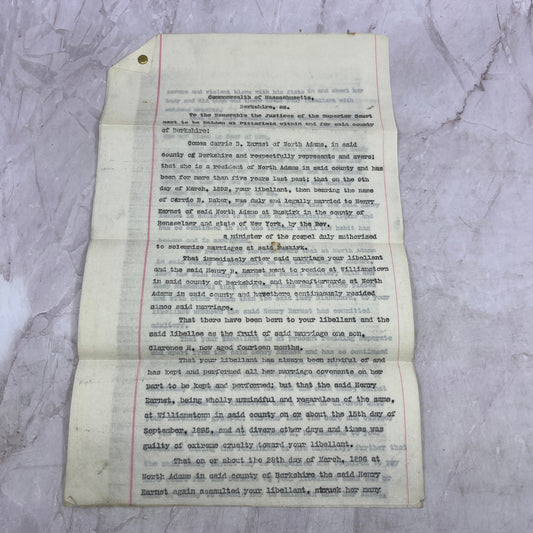 Commonwealth of Massachusetts.
Berkshire, ss.
To the Honorable the Justices of the Superior Court
next to be holden at Pittsfield within and for said county
of Berkshire:
Comes Carrie B. Earnet of North Adams, in said
county of Berkshire and respectfully represents and avers:
that she is a resident of North Adams in said county and has
been for more than five years last past; that on the 9th
day of March, 1892, your libellant, then bearing the name
of Carrie B. Baker, was duly and legally married to Henry
Earnet of said North Adams at Buskirk in the county of
Rensselaer and state of New York, by the Rev.
a minister of the gospel duly authorized
to solemnize marriages at said Buskirk.
That immediately after said marriage your libellant
and the said Henry B. Earnet went to reside at Williamstown
in said county of Berkshire, and thereafterwards at North
Adams in said county and have there continuously resided
since said marriage.
That there have been born to your libellant and the
said libellee as the fruit of said marriage one son,
Clarence H. now aged fourteen months.
That your libellant has always been mindful of and
has kept and performed all her marriage covenants on her
part to be kept and performed; but that the said Henry
Earnet, being wholly unmindful and regardless of the same,
at Williamstown in said county on or about the 15th day of
September, 1895, and at divers other days and times was
guilty of extreme cruelty toward your libellant.
That on or about the 28th day of March, 1896 at
North Adams in said county of Berkshire the said Henry
Earnet again assaulted your libellant, struck her many